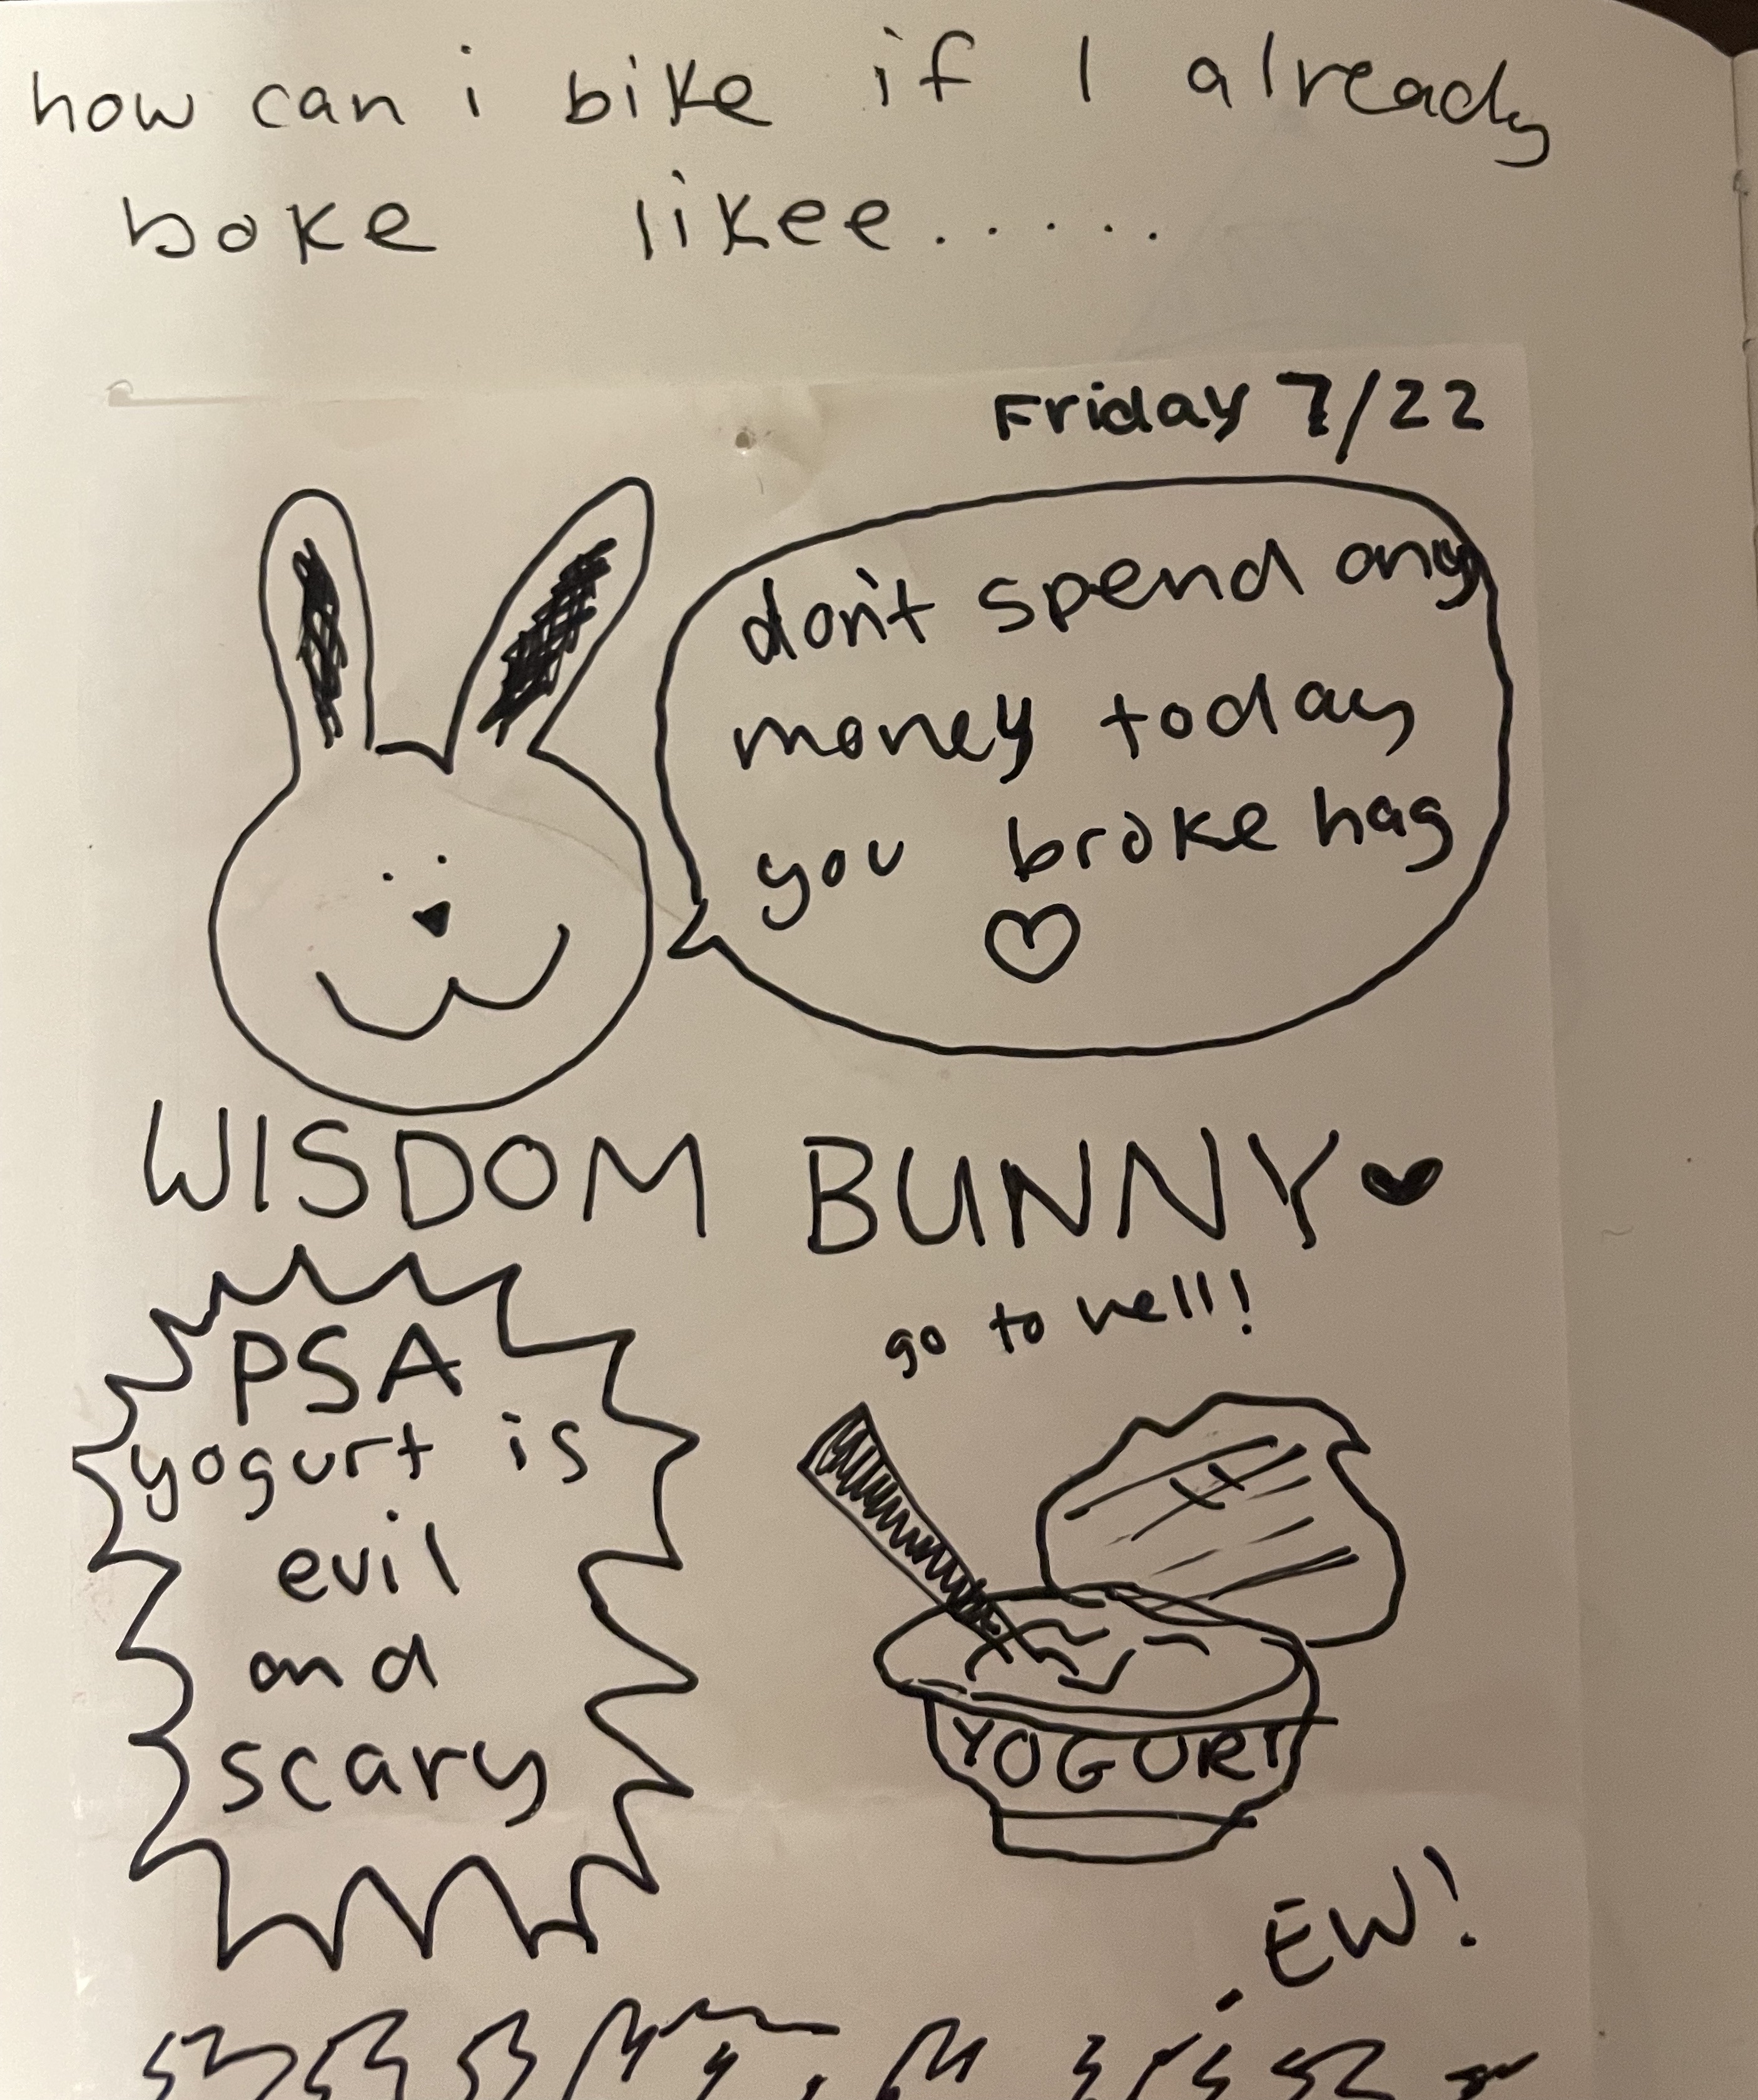 how can i bike if I already
boke likee.....
Friday 7/22
don't spend any
money today
you broke hag
WISDOM BUNNY
go to hell!
PSA
yogurt is
evil
and
scary
YOGURT
EW!